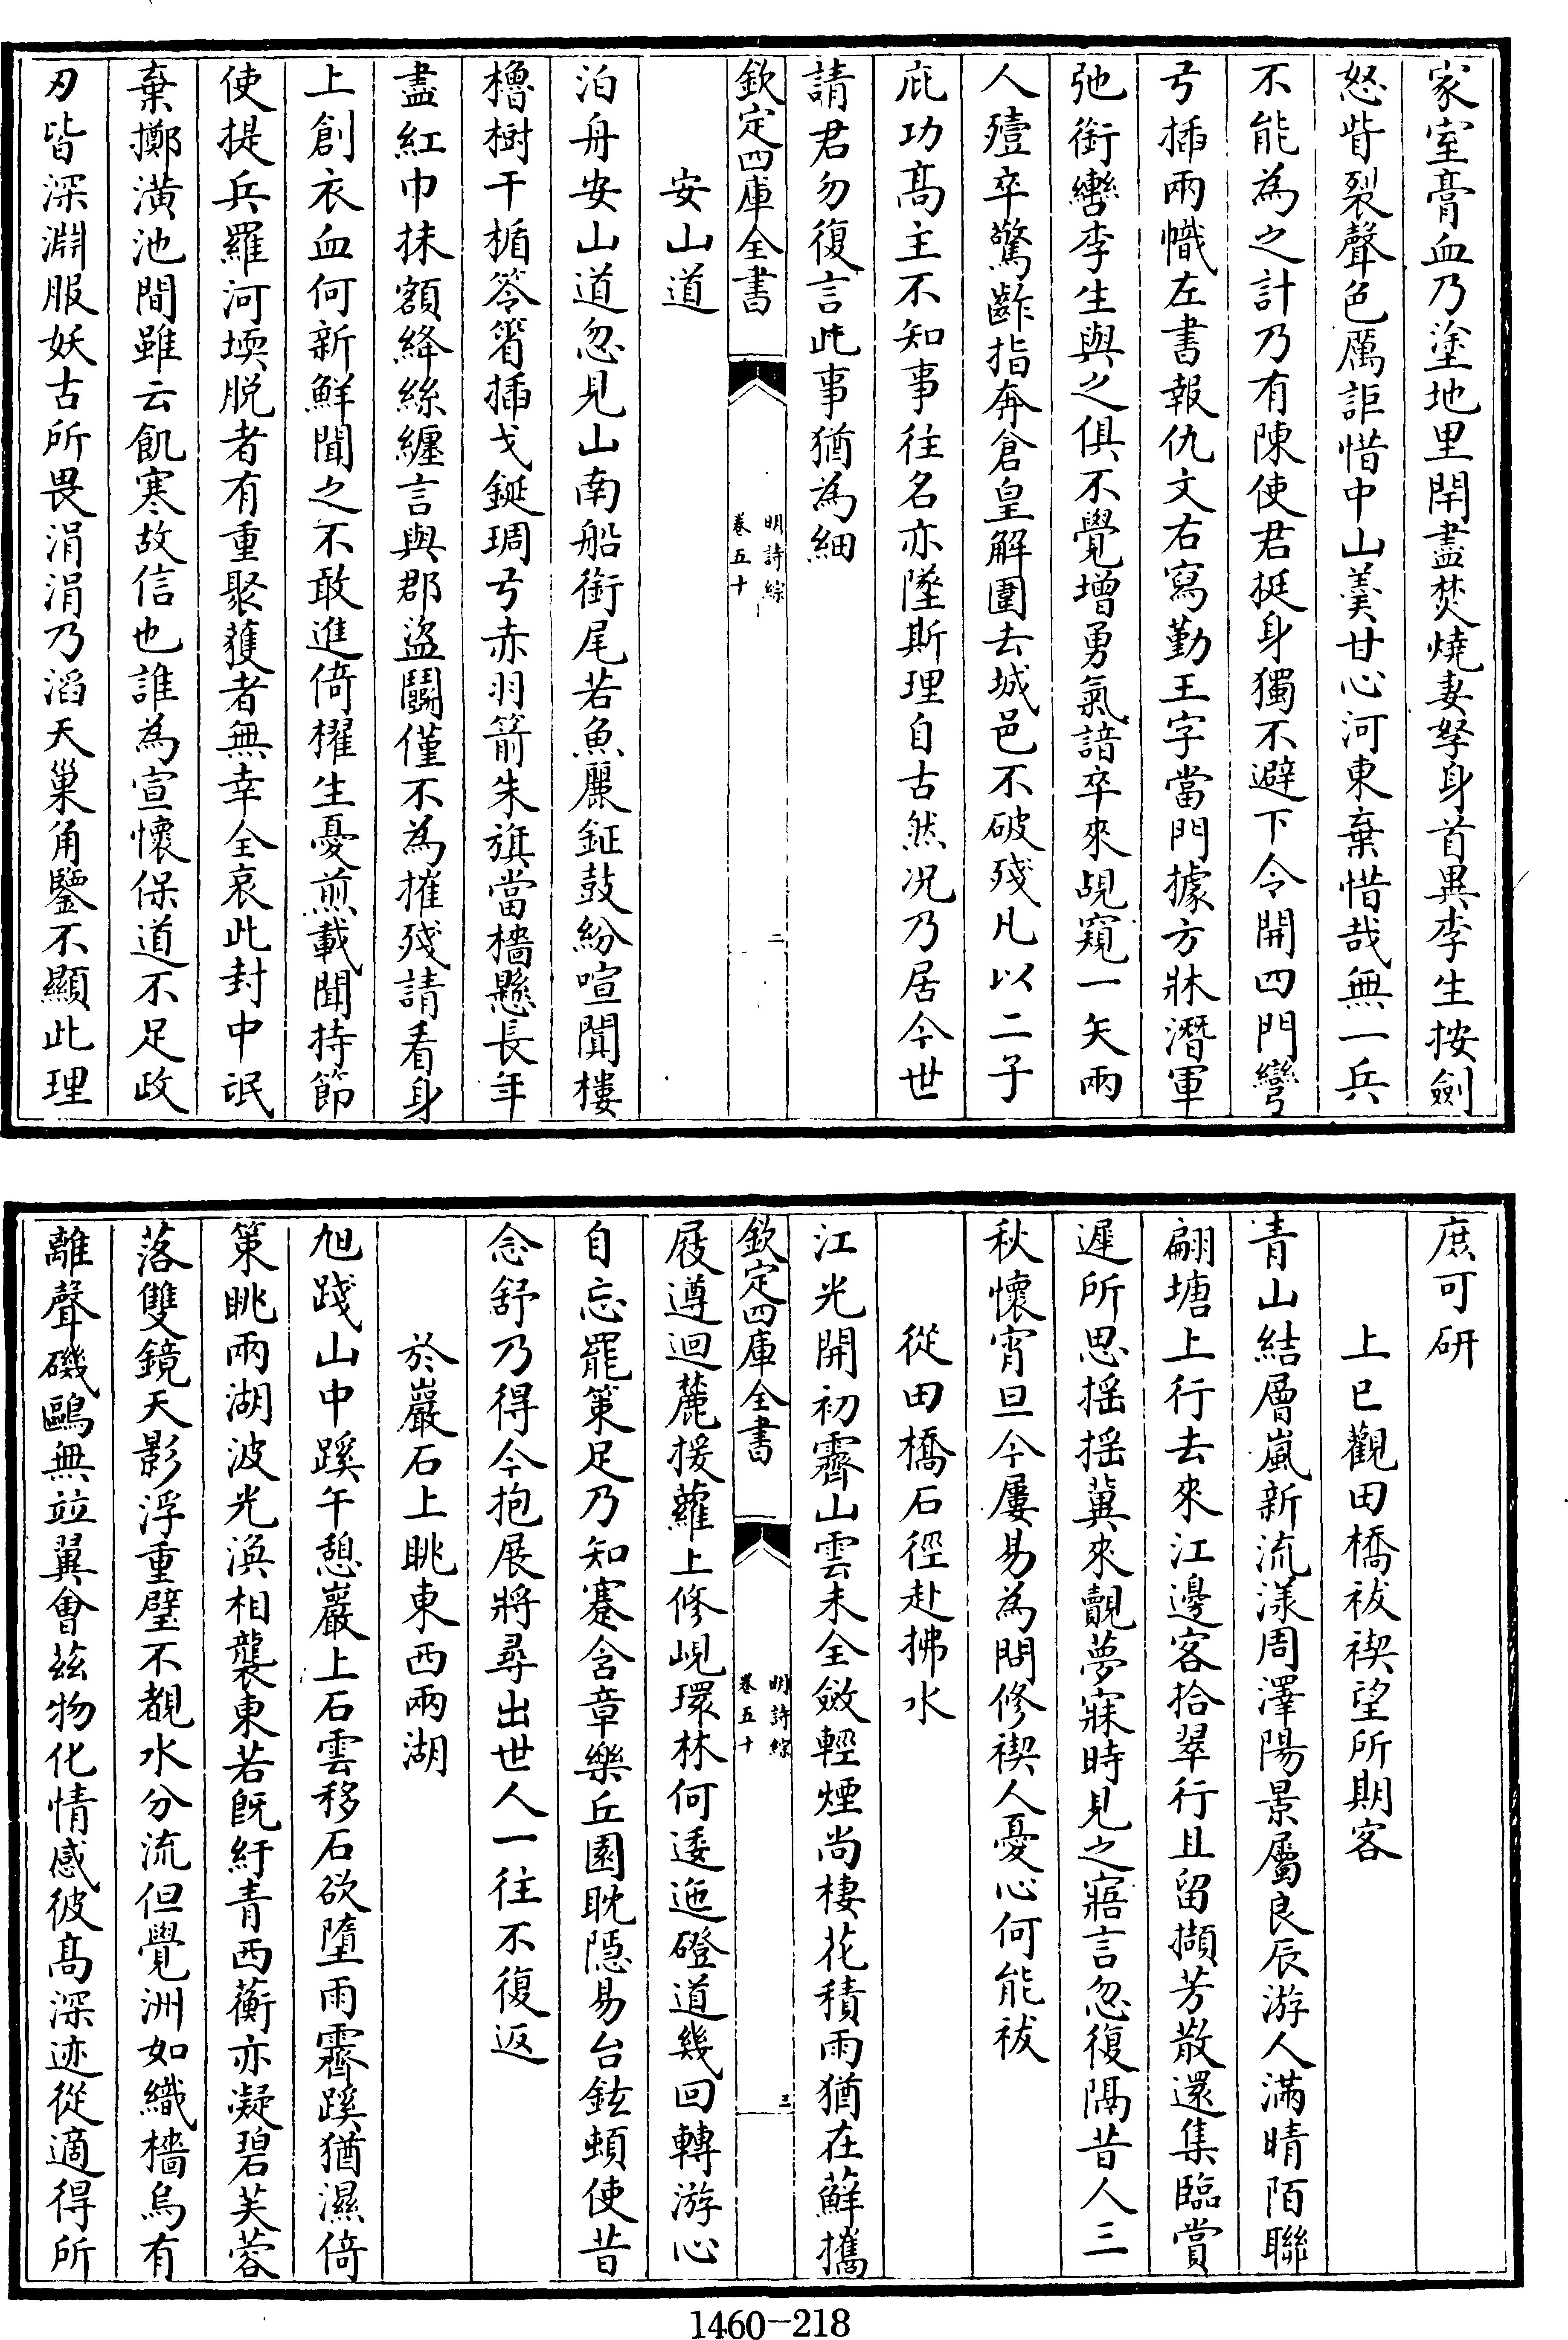 家室膏血乃塗地里閈盡焚燒妻孥身首異李生按劍
怒眥裂聲色厲詎惜中山羹甘心河東棄惜哉無一兵
不能為之計乃有陳使君挺身獨不避下令開四門彎
弓插兩幟左書報仇文右寫勤王字當門據方牀潛軍
弛銜轡李生與之俱不覺增勇氣諳卒來覘窺一矢兩
人殪卒驚齰指奔倉皇解圍去城邑不破殘凡以二子
庇功髙主不知事往名亦墜斯理自古然况乃居今世
請君勿復言此事猶為細
欽定四庫全書
明詩綜
卷五十
二
安山道
泊舟安山道忽見山南船銜尾若魚麗鉦鼓紛喧闐樓
櫓樹干楯笭箵插戈鋋琱弓赤羽箭朱旗當檣懸長年
盡紅巾抹額絳絲纏言與郡盜鬭僅不為摧殘請看身
上創衣血何新鮮聞之不敢進倚櫂生憂煎載聞持節
使提兵羅河堧脱者有重聚獲者無幸全哀此封中氓
棄擲潢池間雖云飢寒故信也誰為宣懷保道不足政
刃皆深淵服妖古所畏涓涓乃滔天巢角鑒不顯此理
庶可研
上巳觀田橋袚禊望所期客
青山結層嵐新流漾周澤陽景屬良辰游人滿晴陌聯
翩塘上行去來江邊客拾翠行且留擷芳散還集臨賞
遲所思揺揺冀來覿夢寐時見之寤言忽復隔昔人三
秋懷宵旦今屢易為問修禊人憂心何能袚
從田橋石徑赴拂水
江光開初霽山雲未全斂輕煙尚棲花積雨猶在蘚攜
欽定四庫全書
明詩綜
卷五十
三
屐遵迴麓援蘿上修峴環林何逶迤磴道幾回轉游心
自忘罷策足乃知蹇含章樂丘園耽隱易台鉉頓使昔
念舒乃得今抱展將尋出世人一往不復返
於巖石上眺東西兩湖
旭踐山中蹊午憩巖上石雲移石欲墮雨霽蹊猶濕倚
策眺兩湖波光渙相襲東若既紆青西蘅亦凝碧芙蓉
落雙鏡天影浮重璧不覩水分流但覺洲如織檣烏有
離聲磯鷗無竝翼會兹物化情感彼髙深迹從適得所
1460-218